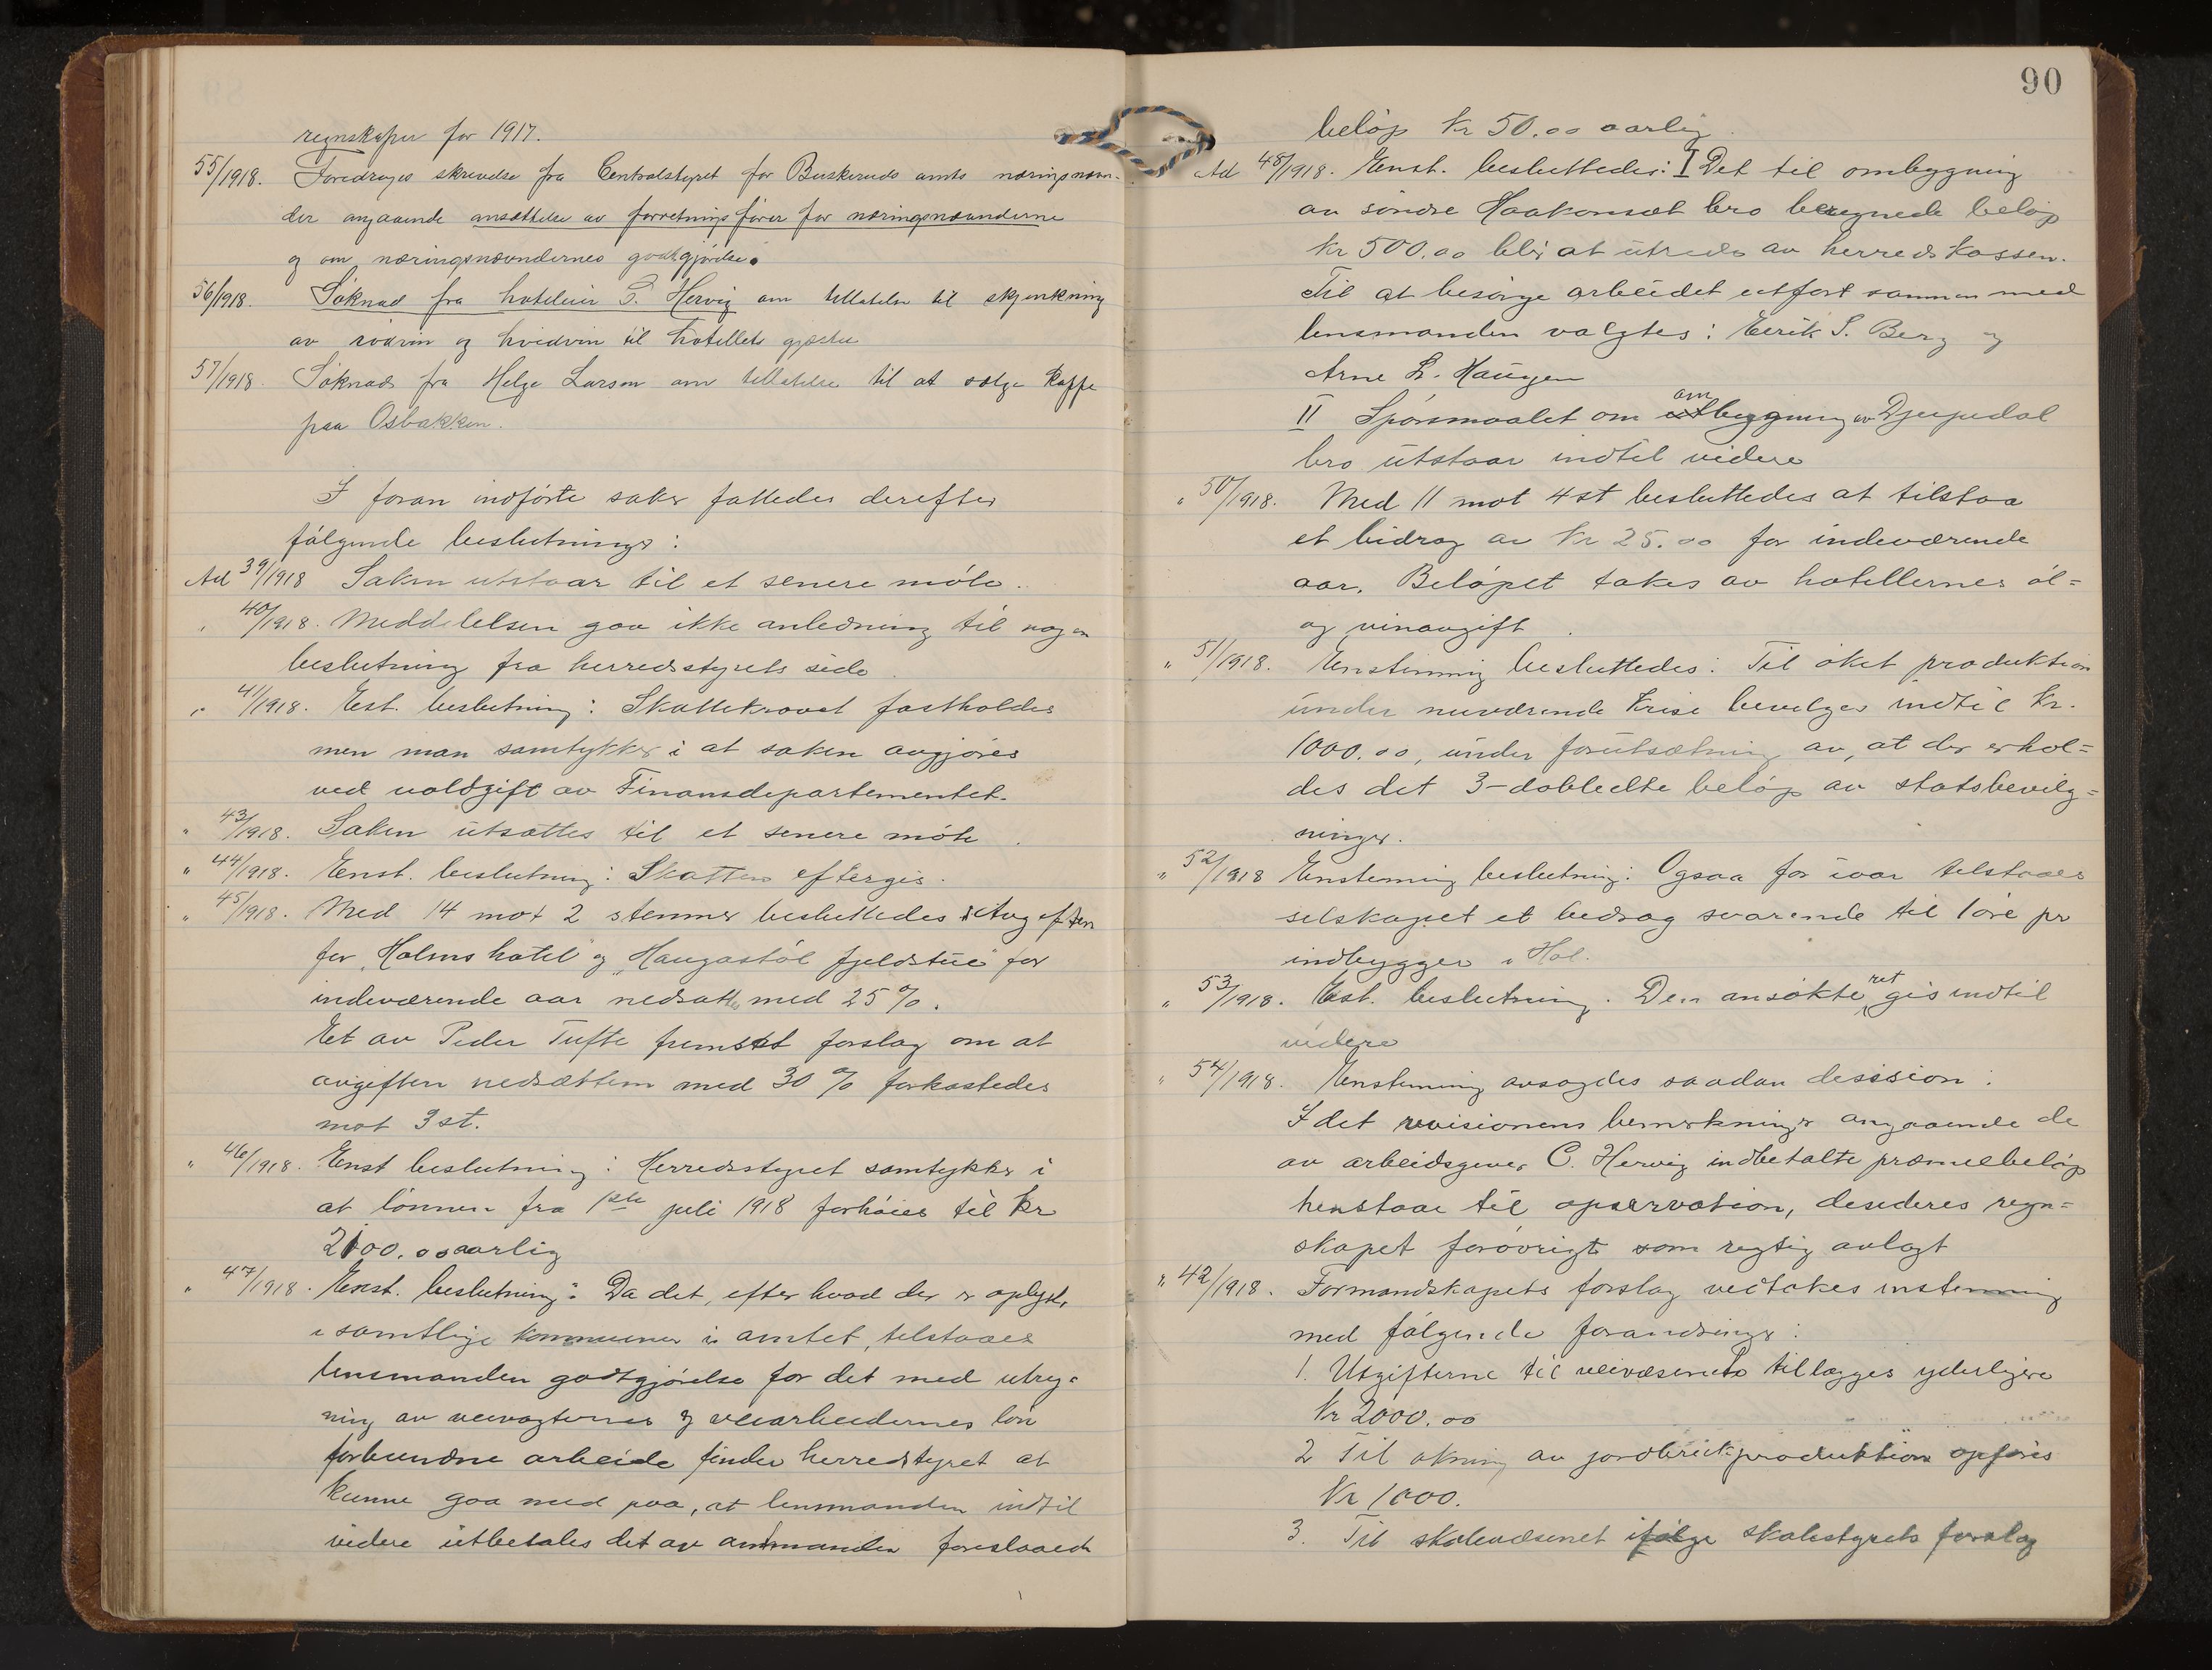 regnskaper for 1917.
55/1918. Foredrages skrivelse fra Centralstyret for Buskeruds amts næringsnævn-
der angaaende ansættelse av forretningsfører for næringsnævnderne
og om næringsnævndernes godtgjørelse.
56/1918. Søknad fra hoteleier C. Herwig om tillatelse til skjenkning
av rødvin og hvidvin til hotellets gjester
57/1918. Søknad fra Helge Larsen om tillatelse til at sælge kaffe
paa Osbakken.
I foran indførte saker fattedes derefter
følgende beslutninger:
Ad 39/1918 Saken utstaar til et senere møte.
" 40/1918. Meddelelsen gav ikke anledning til nogen
beslutning fra herredsstyrets side.
" 41/1918. Est. beslutning: Skattekravet fastholdes
men man samtykker i at saken avgjøres
ved voldgift av Finansdepartementet.
" 43/1918. Saken utsættes til et senere møte.
" 44/1918. Enst. beslutning: Skatten eftergis.
" 45/1918. Med 14 mot 2 stemmer besluttedes avgiften
for "Holms hotel" og "Haugastøl fjeldstue" for
indeværende aar nedsattes med 25%.
Et av Peder Tufte fremsat forslag om at
avgiften nedsættem med 30% forkastedes
mot 3 st.
" 46/1918. Enst beslutning: Herredsstyret samtykker i
at lønnen fra 1ste juli 1918 forhøies til kr
2100.00 aarlig
" 47/1918. Enst. beslutning: Da det, efter hvad der er oplyst,
i samtlige kommuner i amtet, tilstaaes
lensmanden godtgjørelse for det med utreg=
ning av veivogternes og veiarbeidernes løn
forbundne arbeide finder herredstyret at
kunne gaa med paa, at lensmanden indtil
videre utbetales det av amtmanden foreslaaede
90
beløp kr 50.00 aarlig.
Ad 48/1918. Enst. besluttedes: I Det til ombygning
av søndre Haakonsæt bro beregnede beløp
kr 500.00 blir at utrede av herredskassen.
Til at besørge arbeidet utført sammen med
lensmanden valgtes: Eerik S. Berg og
Arne L. Haugen
II Spørsmaalet om ombygning av Djupedal
bro utstaar indtil videre
" 50/1918. Med 11 mot 4 st besluttedes at tilstaa
et bidrag av kr 25.00 for indeværende
aar. Beløpet takes av hotellernes øl=
og vinavgift.
" 51/1918. Enstemmig besluttedes: Til øket produktion
under nuværende krise bevilges indtil kr.
1000.00, under forutsætning av, at der erhol=
des det 3-dobbelte beløp av statsbevilg=
ninger.
" 52/1918 Enstemmig beslutning: Ogsaa for iaar tilstaaes
selskapet et bidrag svarende til 1 øre pr
indbygger i Hol.
" 53/1918. Est. beslutning. Den ansøkte ret gis indtil
videre
" 54/1918. Enstemmig avsagdes saadan desision:
Idet revisionens bemerkninger angaaende de
av arbeidsgiver C. Herwig indbetalte præmiebeløp
henstaar til opservation, desideres regn=
skapet forøvrigt som rigtig avlagt
" 42/1918. Formandskapets forslag vedtakes enstemmig
med følgende forandringer:
1. Utgifterne til veivæsenets tillægges yderligere
Kr 2000.00
2 Til økning av jordbrukproduktion opføres
Kr 1000.
3. Til skolevæsenet ifølge skolestyrets forslag